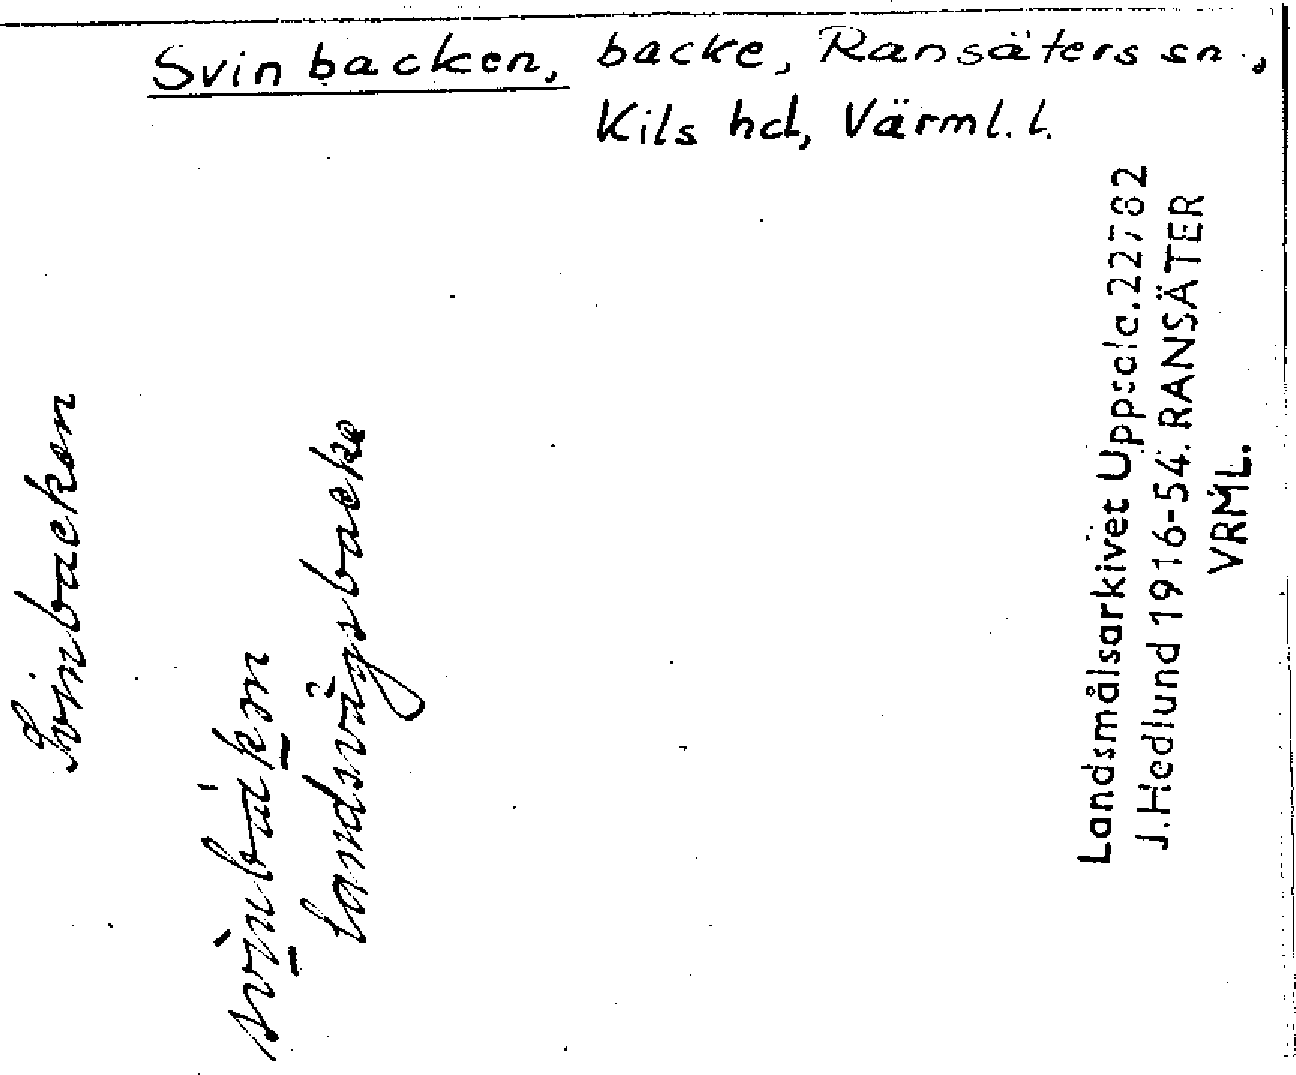 Svinbacken, backe, Ransäters sn.,
Kils hd, Värml. l.
Svinbacken
landsvägsbacke
Landsmålsarkivet Uppsala. 22782
J. Hedlund 1916-54. RANSÄTER
VRML.